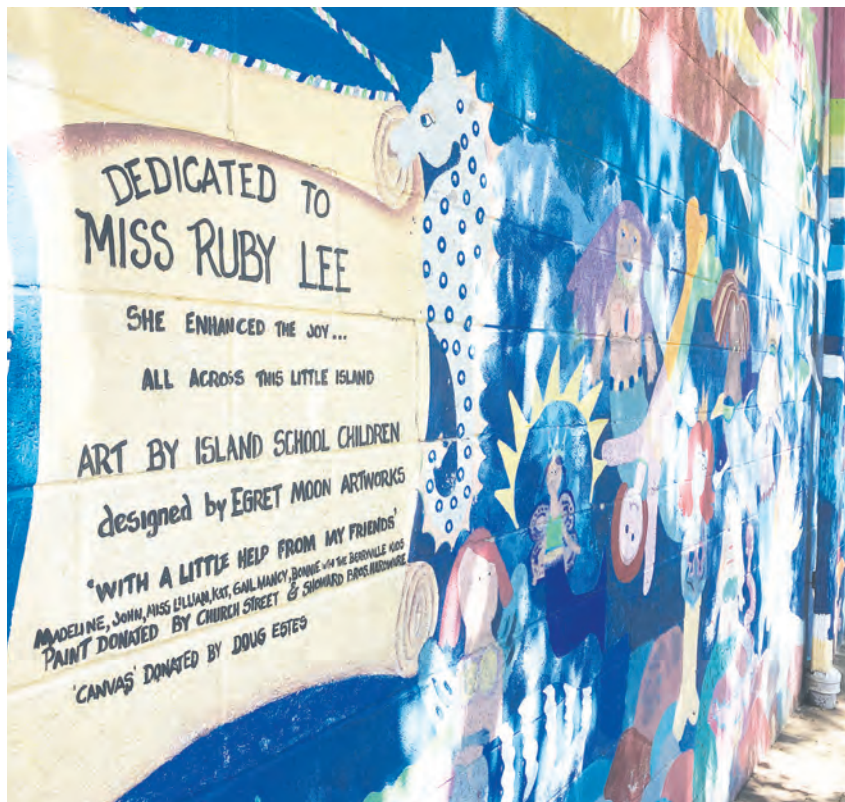 DEDICATED TO
MISS RUBY LEE
SHE ENHANCED THE JOY...
ALL ACROSS THIS LITTLE ISLAND
ART BY ISLAND SCHOOL CHILDREN
designed by EGRET MOON ARTWORKS
'WITH A LITTLE HELP FROM MY FRIENDS'
MADELINE, JOHN, MISS LILLIAN, KAT, GAIL, NANCY, BONNIE THE KIDS
PAINT DONATED BY CHURCH STREET & SHOWARD BROS. HARDWARE
'CANVAS' DONATED BY DOUG ESTES